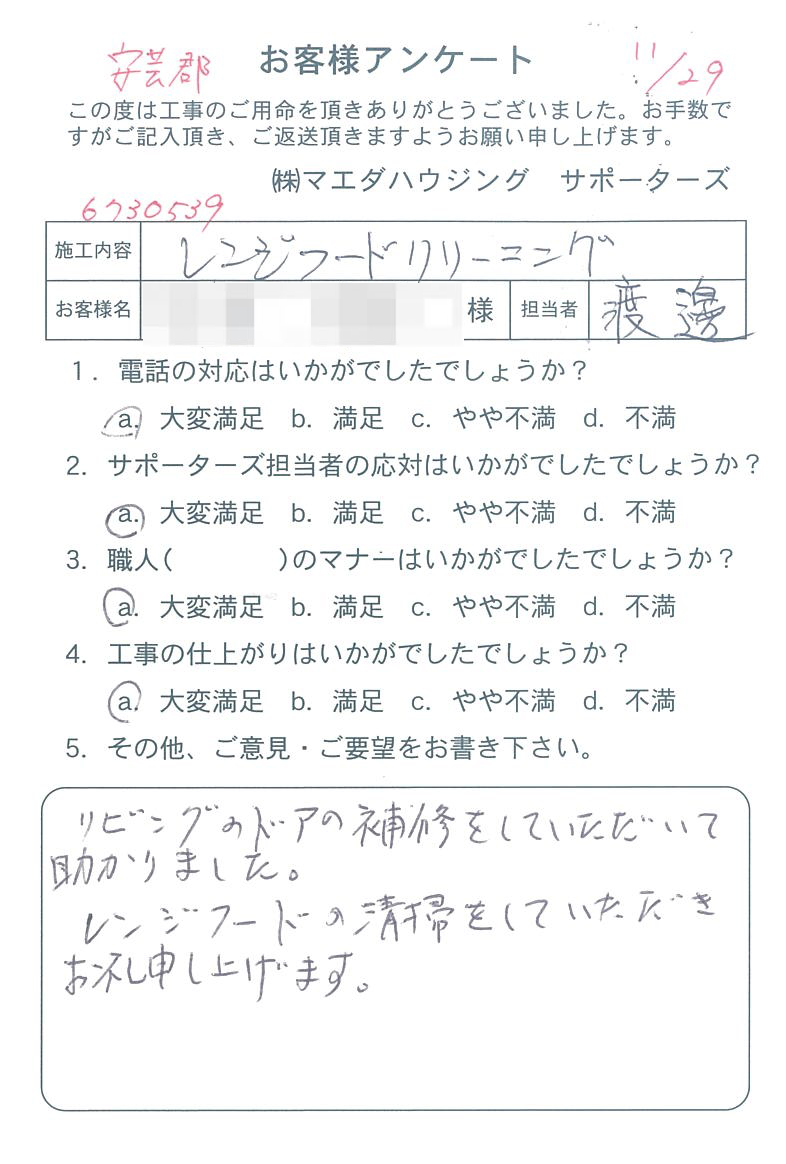 安芸郡 お客様アンケート 11/29
この度は工事のご用命を頂きありがとうございました。お手数で
すがご記入頂き、ご返送頂きますようお願い申し上げます。
㈱マエダハウジング サポーターズ
6730539
施工内容 レンジフードクリーニング
お客様名 様 担当者 渡邊
1. 電話の対応はいかがでしたでしょうか？
a. 大変満足 b. 満足 c. やや不満 d. 不満
2. サポーターズ担当者の応対はいかがでしたでしょうか？
a. 大変満足 b. 満足 c. やや不満 d. 不満
3. 職人( )のマナーはいかがでしたでしょうか？
a. 大変満足 b. 満足 c. やや不満 d. 不満
4. 工事の仕上がりはいかがでしたでしょうか？
a. 大変満足 b. 満足 c. やや不満 d. 不満
5. その他、ご意見・ご要望をお書き下さい。
リビングのドアの補修をしていただいて
助かりました。
レンジフードの清掃をしていただき
お礼申し上げます。